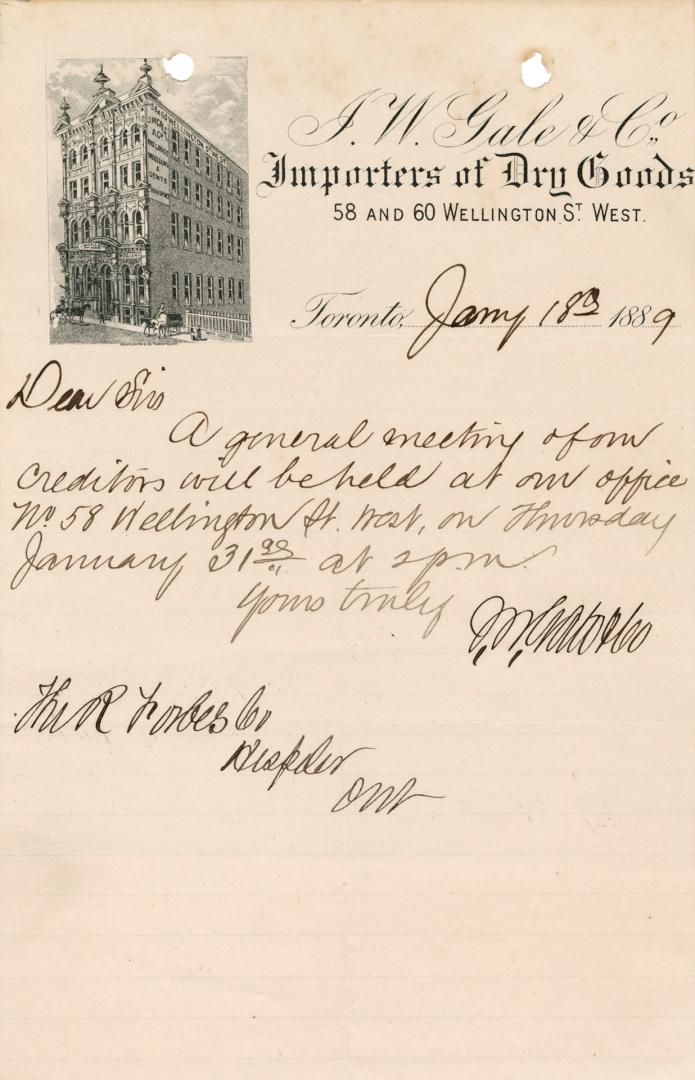 J. W. Gale & Co.
Importers of Dry Goods
58 AND 60 WELLINGTON ST WEST.
Toronto, Jany 18th 1889
Dear Sir
A general meeting of our
creditors will be held at our office
No 58 Wellington St. West, on Thursday
January 31st at 2 p.m.
Yours truly
J. W. Gale & Co
The R Forbes Co
Hespeler
Ont